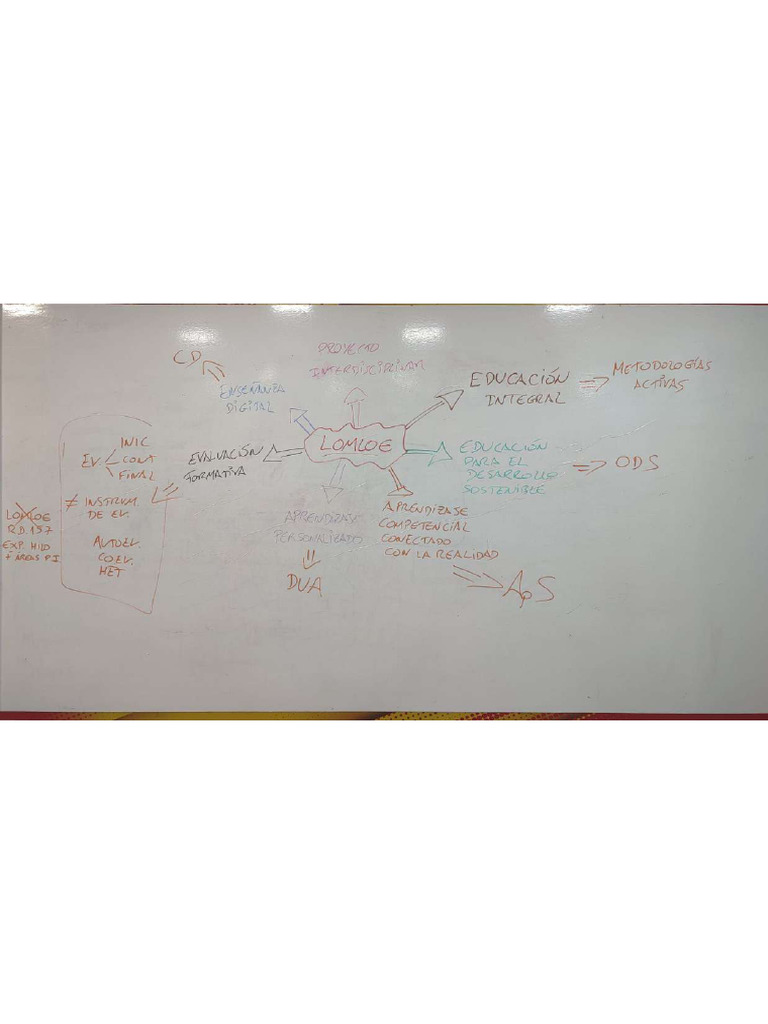 PROYECTO
INTERDISCIPLINAR
CD
ENSEÑANZA
DIGITAL
EDUCACIÓN
INTEGRAL
METODOLOGÍAS
ACTIVAS
LOMLOE
EVALUACIÓN
FORMATIVA
EDUCACIÓN
PARA EL
DESARROLLO
SOSTENIBLE
ODS
INIC
EV. CONT
FINAL
≠ INSTRUM.
DE EV.
AUTOEV.
COEV.
HET
LOMLOE
R.D. 157
EXP. HILO
+ ÁREAS P.I
APRENDIZAJE
PERSONALIZADO
DUA
APRENDIZAJE
COMPETENCIAL
CONECTADO
CON LA REALIDAD
ApS